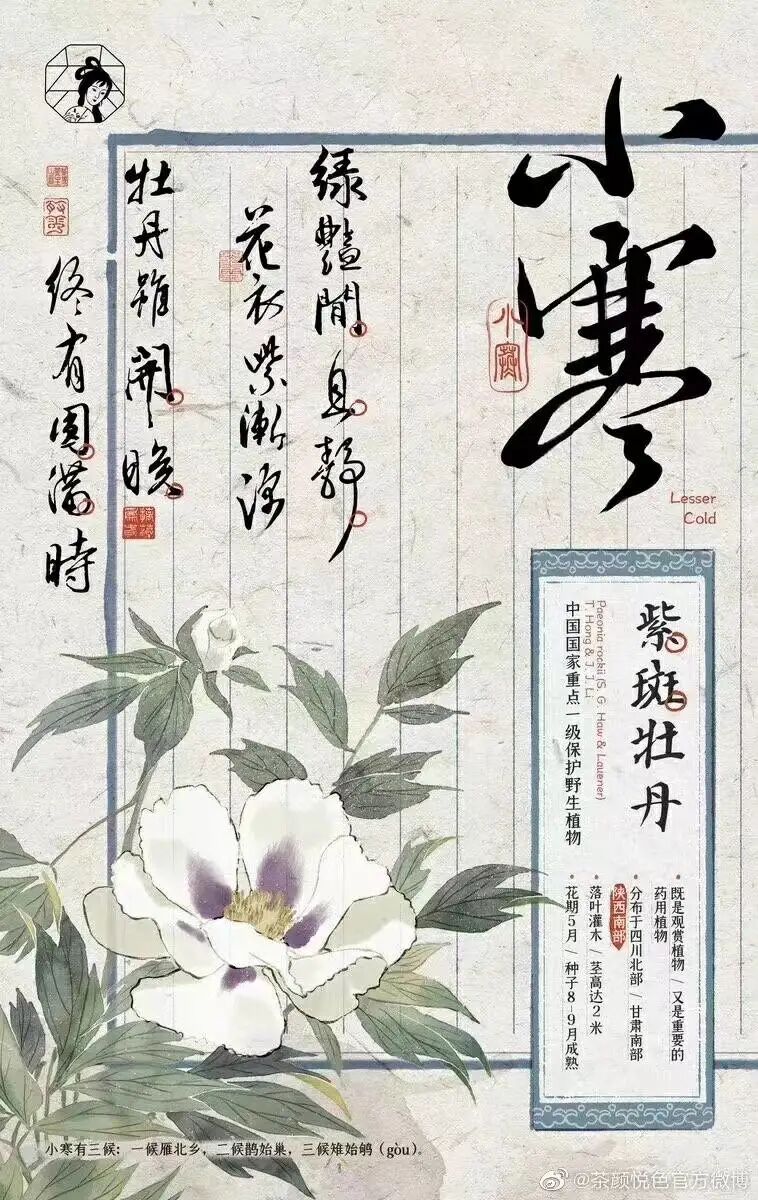 小寒
小寒
Lesser
Cold
绿艷閒且静
花衣紫漸深
牡丹雖開晚
终有圆满時
紫斑牡丹
Paeonia rockii (S. G. Haw & Lauener)
T. Hong & J. J. Li
中国国家重点一级保护野生植物
既是观赏植物 / 又是重要的
药用植物
分布于四川北部 / 甘肃南部
陕西南部
落叶灌木 茎高达2米
花期5月 / 种子8-9月成熟
小寒有三候：一候雁北乡，二候鹊始巢，三候雉始雊（gòu）。
@茶颜悦色官方微博